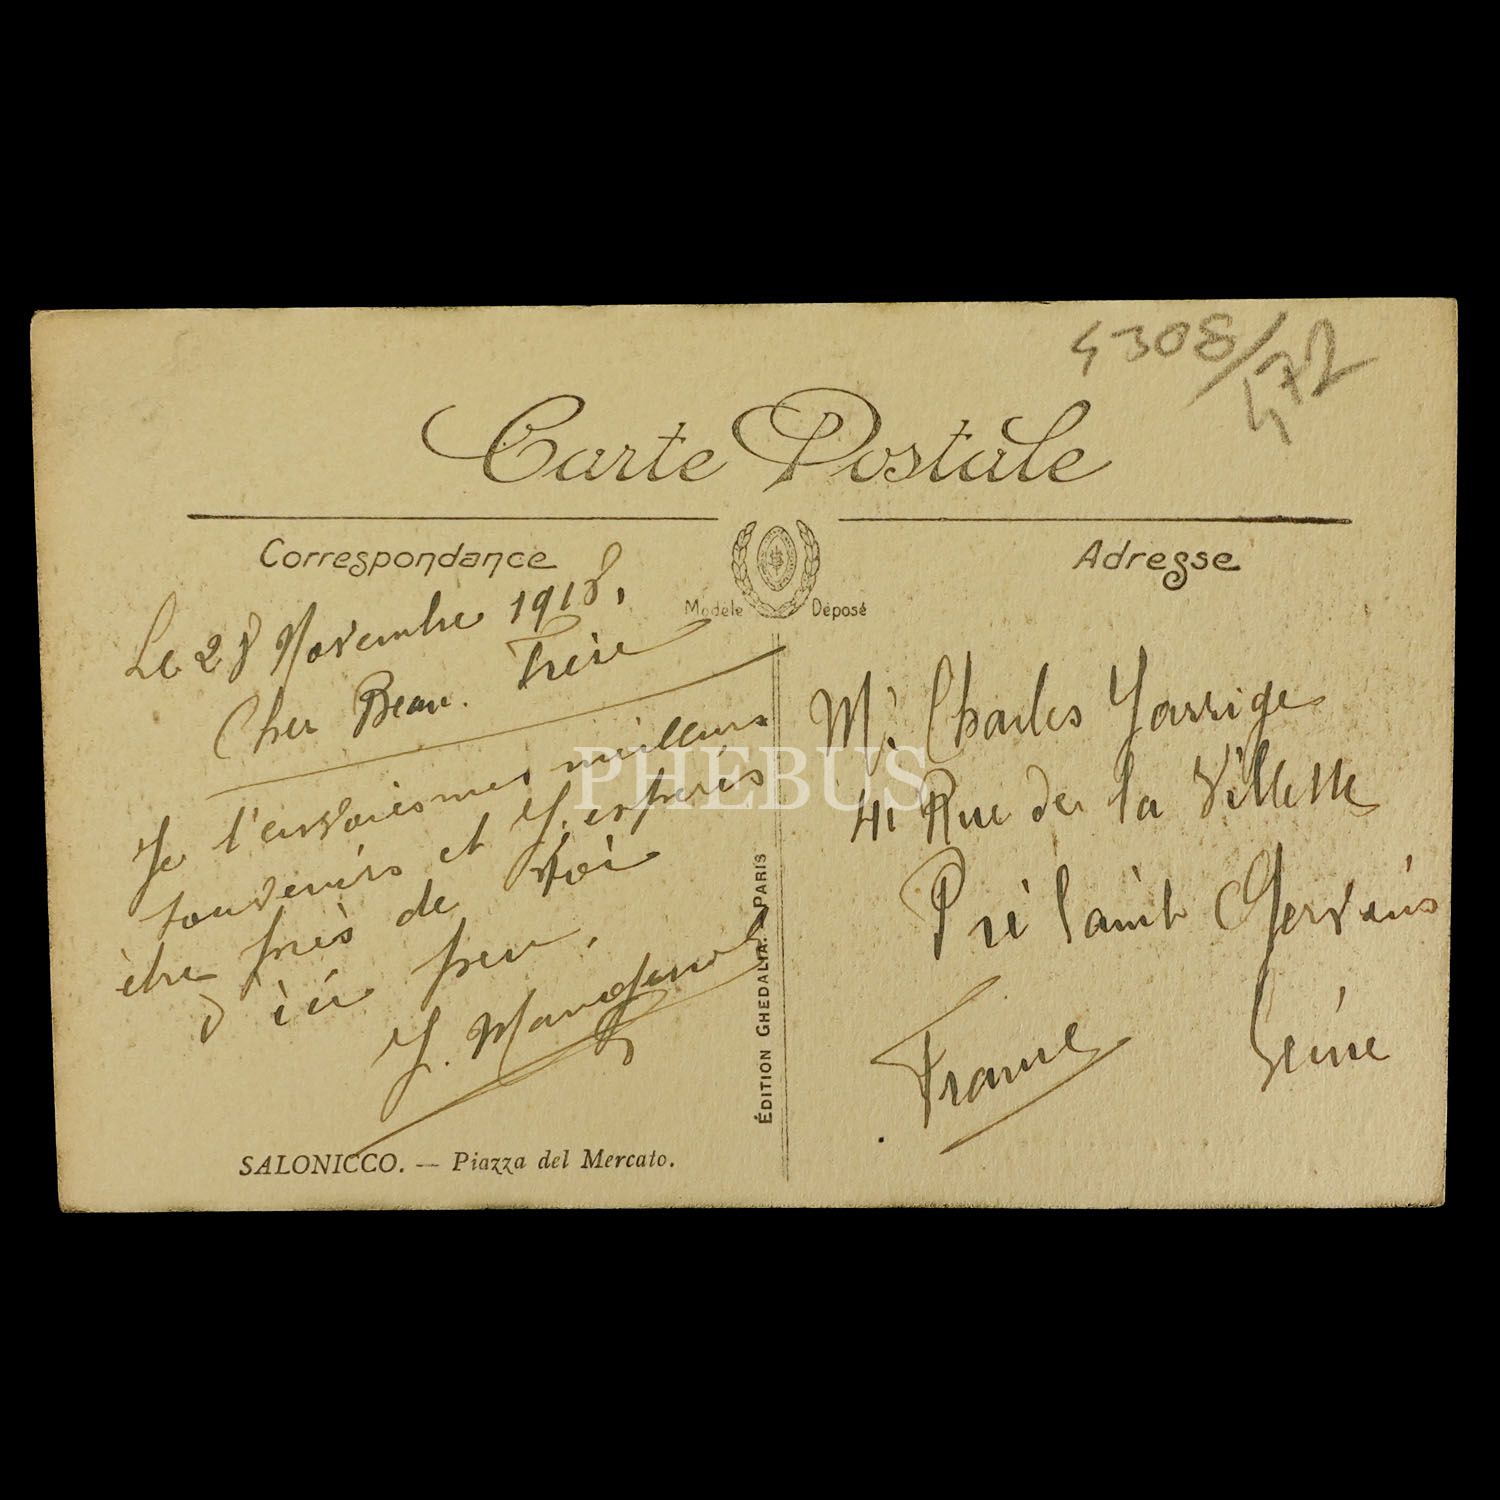 4308/472
Carte Postale
Correspondance
Adresse
Modèle Déposé
Le 28 Novembre 1918,
Cher Beau. Frère
Je t'envoies mes meilleurs
souvenirs et J'esperés
être près de toi
d'ici peu.
M. Charles Jarrige
41 Rue de la Villette
Pré Saint Gervais
Seine
France
ÉDITION GHEDALIA. - PARIS
SALONICCO. — Piazza del Mercato.
PHEBUS